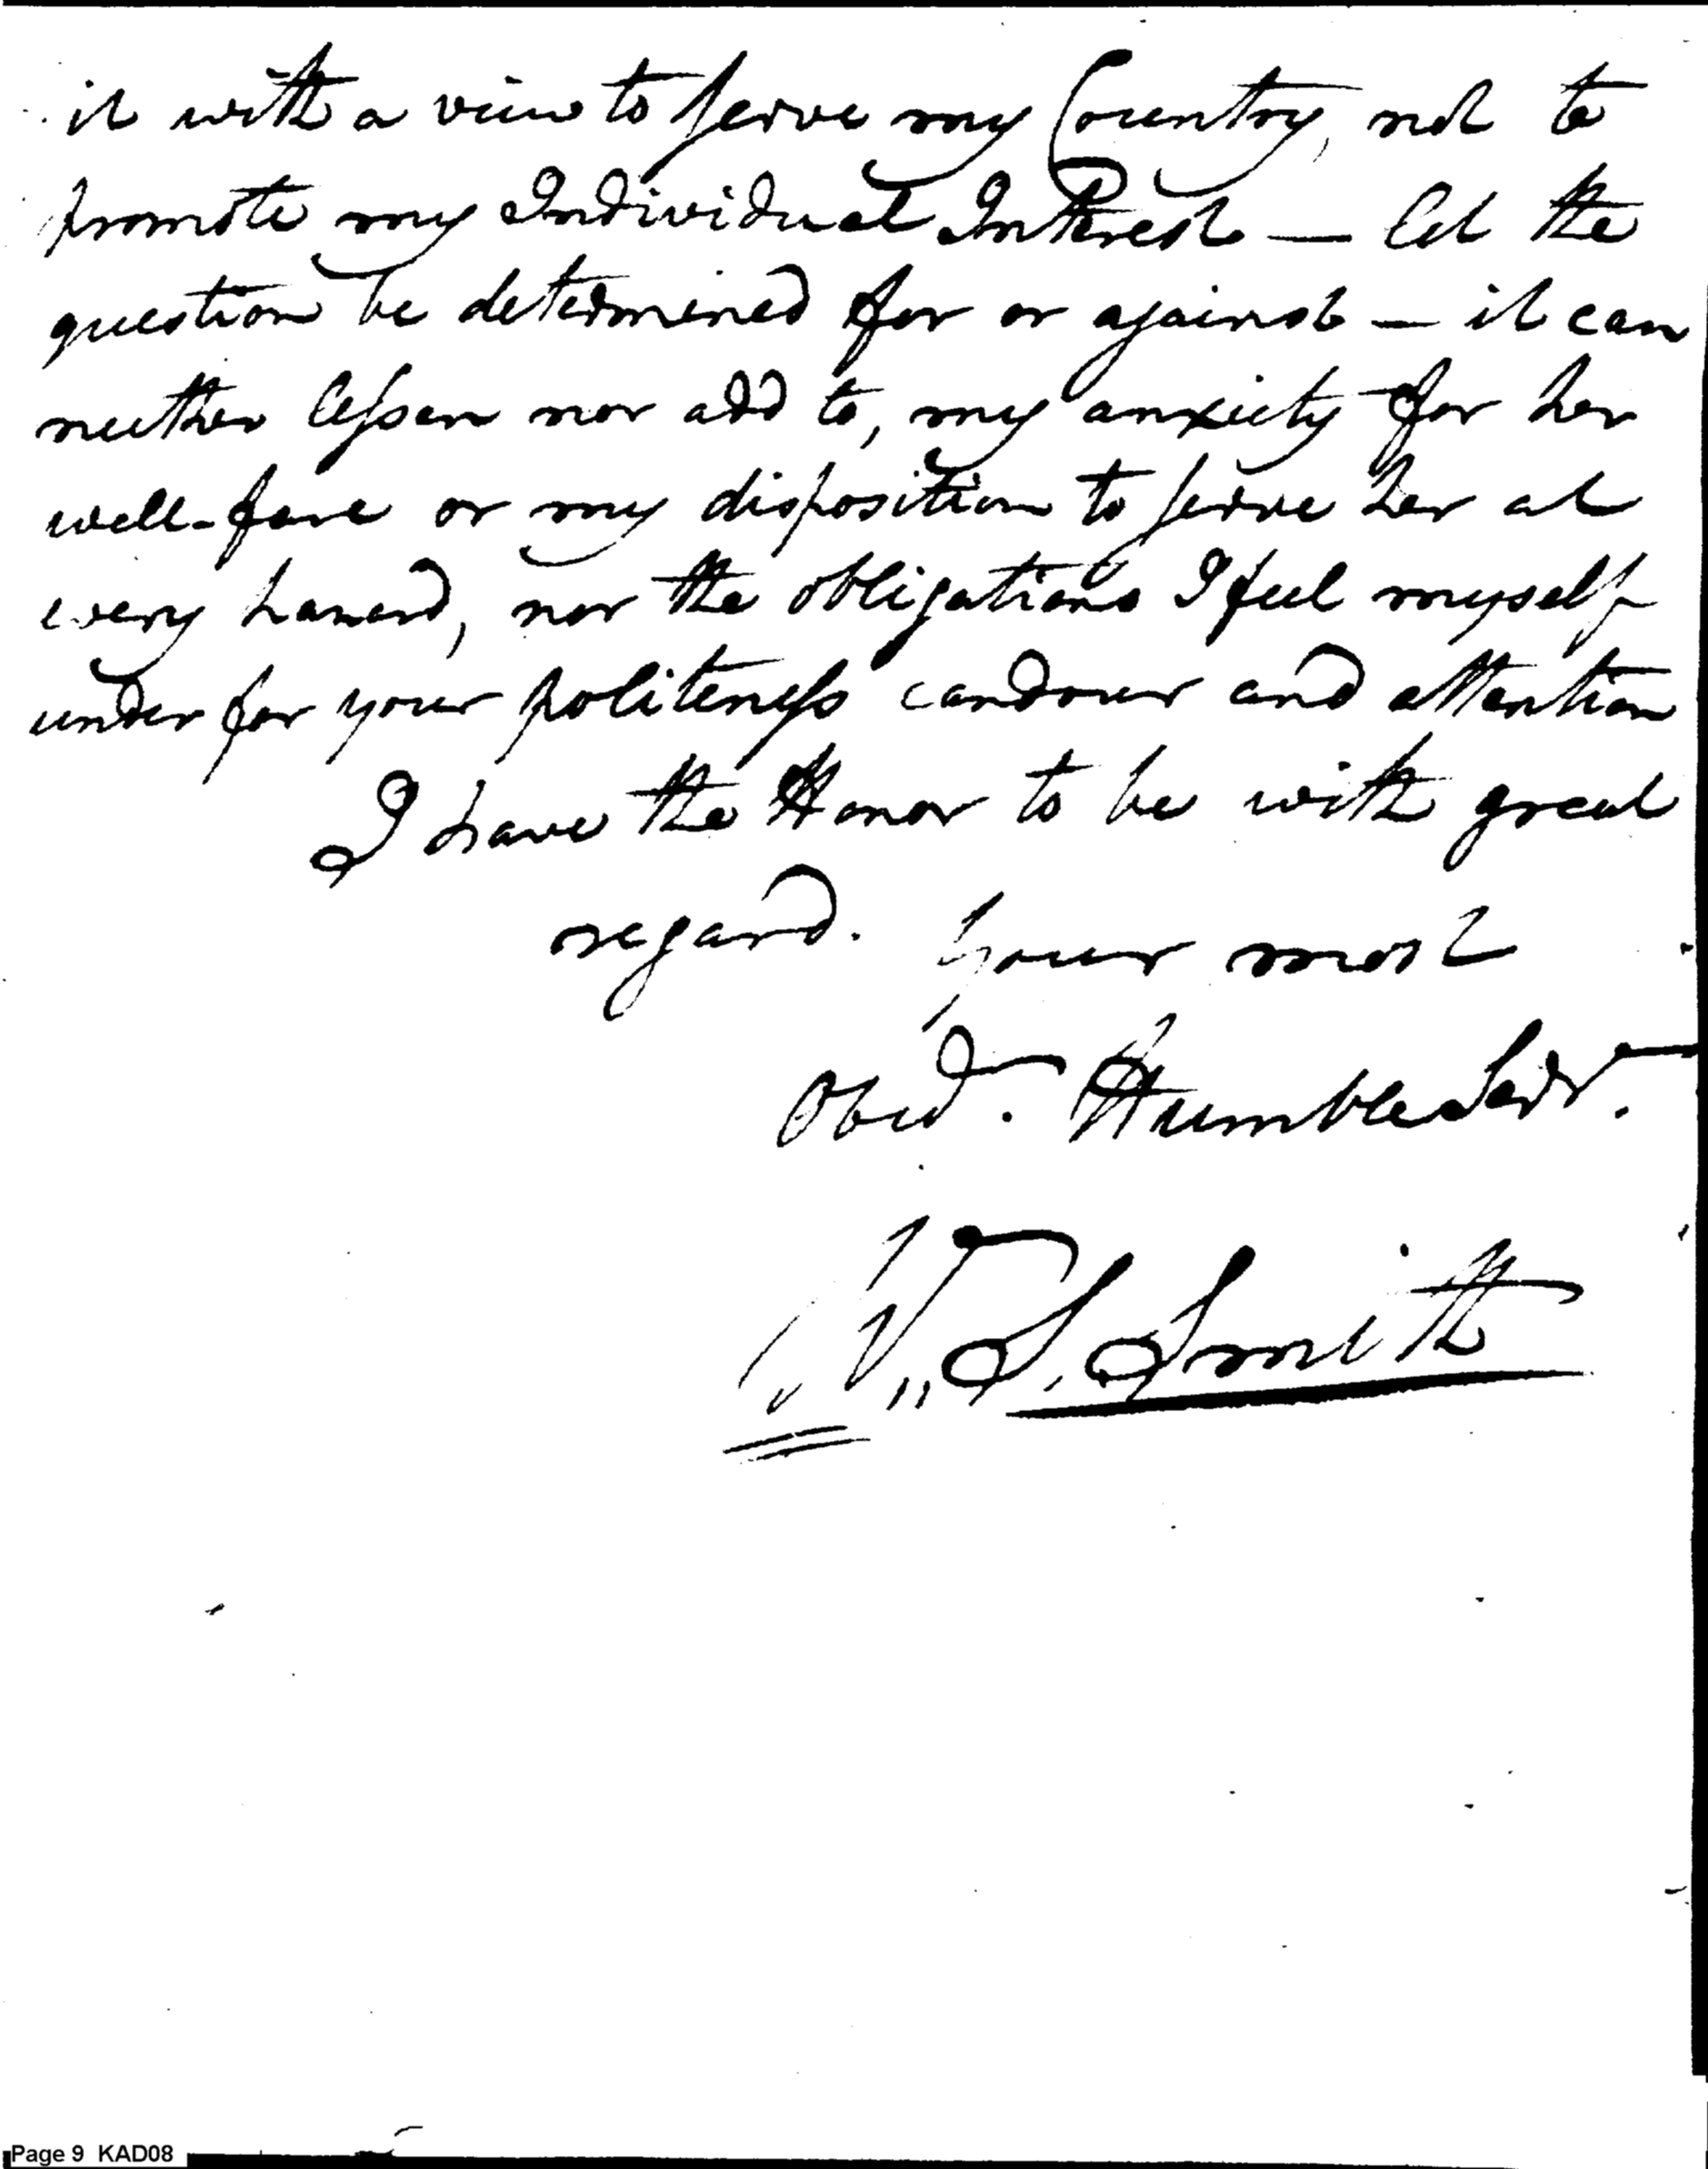 it with a view to serve my Country, not to
promote my Individual Interest — let the
question be determined for or against — it can
neither lessen nor add to, my anxiety for her
well-fare or my disposition to serve her at
every hazard, nor the obligations I feel myself
under for your politeness candour and attention
I have the Honor to be with great
regard. your most
Obed. Humble Servt.
W,, S. Smith
Page 9 KAD08